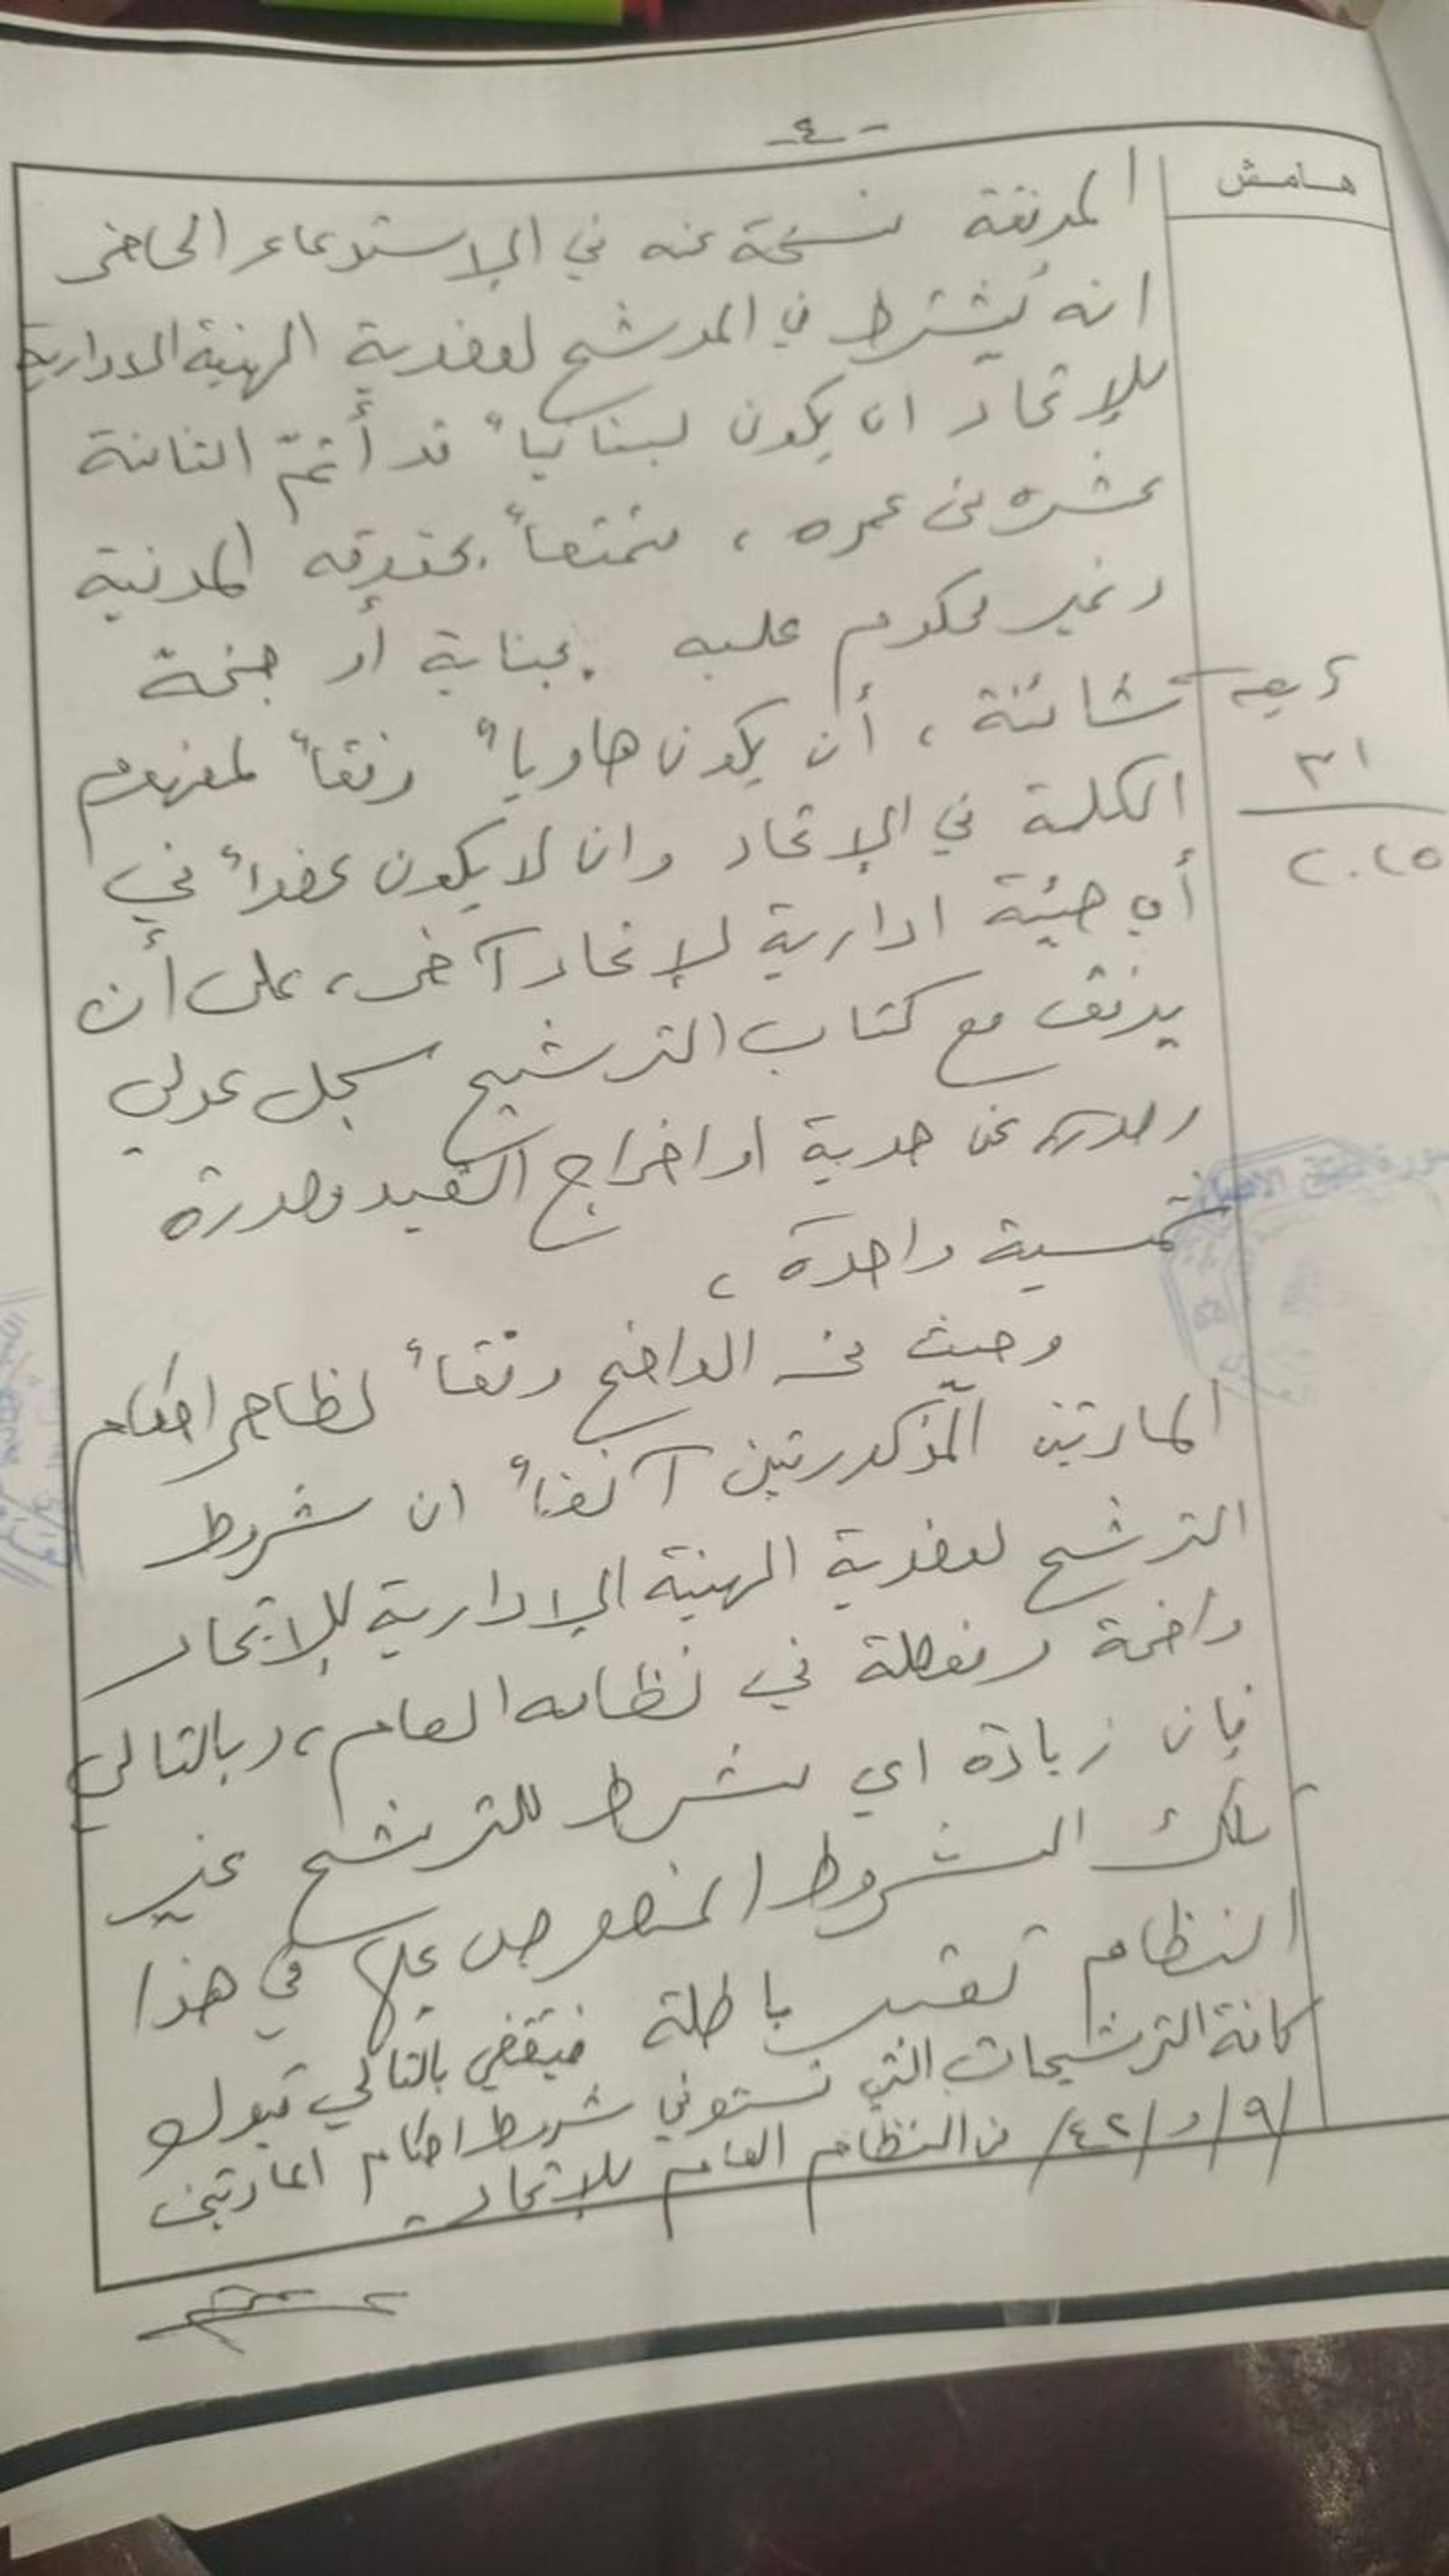 - ٤ -
هامش
المرفقة نسخة عنه في الإستدعاء الحاضر
انه يُشترط في المرشح لعضوية الهيئة الادارية
للإتحاد ان يكون لبنانياً قد أتمّ الثامنة
عشره من عمره ، متمتعاً بحقوقه المدنية
وغير محكوم عليه بجناية أو جنحة
شائنة ، أن يكون هاوياً وفقاً لمفهوم
الكلمة في الإتحاد وان لا يكون عضواً في
أي هيئة ادارية لإتحاد آخر، على أن
يرفق مع كتاب الترشيح سجل عدلي
وصورة عن هوية او اخراج القيد وصورة
شمسية واحدة ،
وحيث من الواضح وفقاً لظاهر احكام
المادتين المذكورتين آنفاً ان شروط
الترشح لعضوية الهيئة الإدارية للإتحاد
واضحة ومفصلة في نظامه العام، وبالتالي
فإن زيادة اي شرط للترشح غير
تلك الشروط المنصوص عليها في هذا
النظام تعتبر باطلة فيقتضي بالتالي قبول
كافة الترشيحات التي تستوفي شروط احكام المادتين
/٩/ و /٤٢/ من النظام العام للإتحاد.
٣١
٢٠٢٥